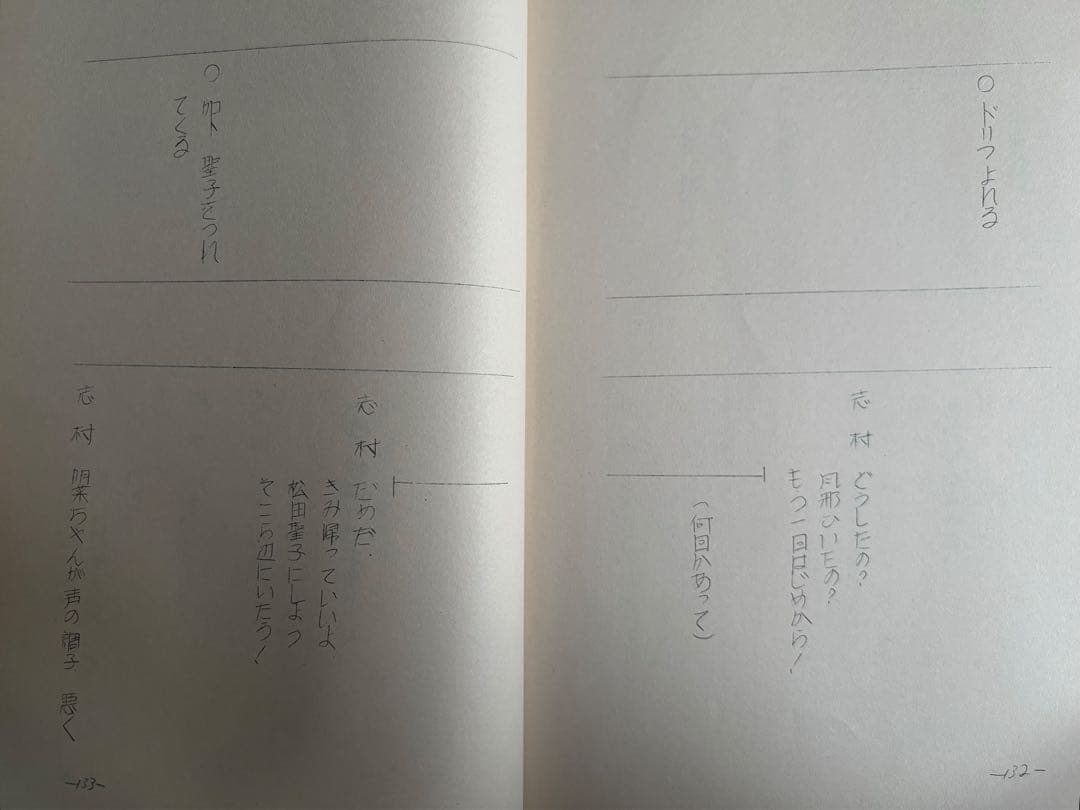 ○ ドリフよれる
志村 どうしたの?
風邪ひいたの?
もう一回はじめから!
(何回かあって)
-132-
志村 だめだ、
きみ帰っていいよ
松田聖子にしよう
そこら辺にいたろう!
○ 加ト 聖子をつれ
てくる
志村 明菜ちゃんが声の調子 悪く
-133-